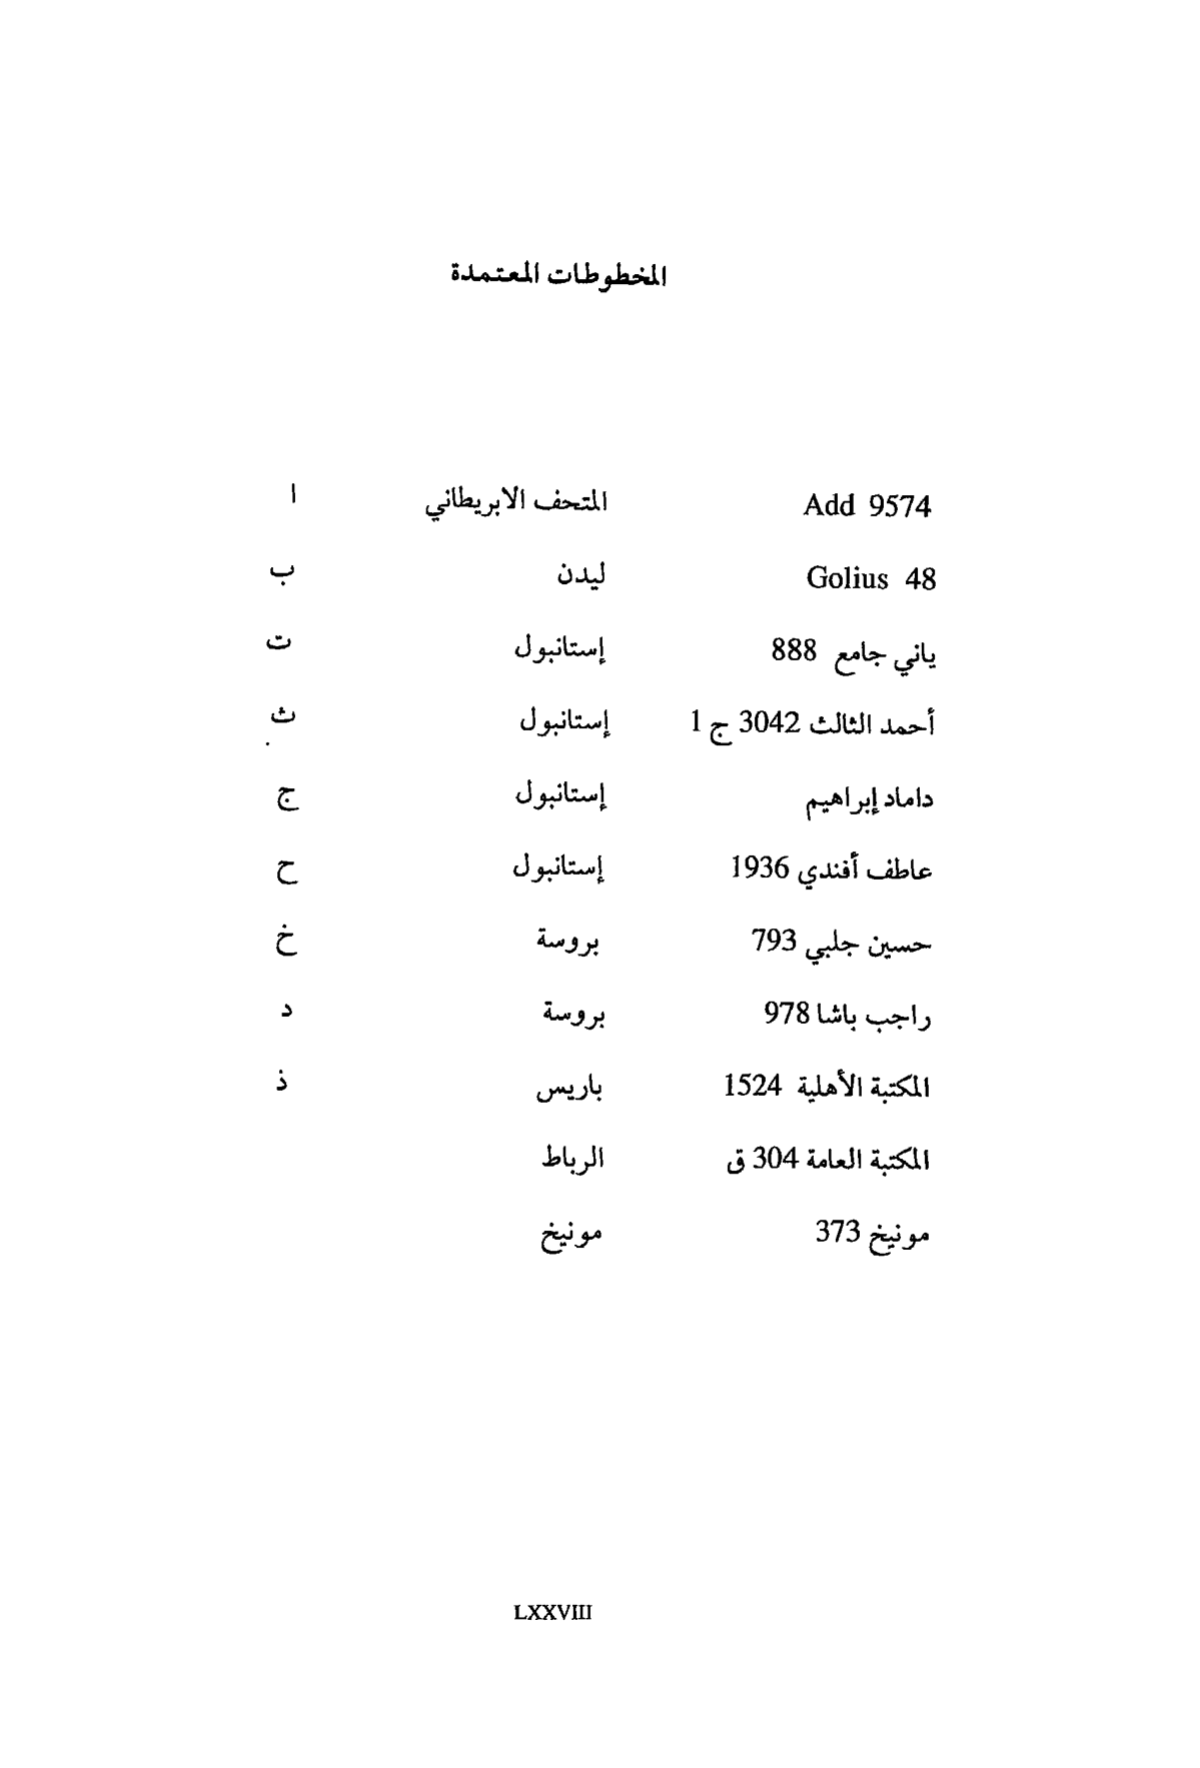 المخطوطات المعتمدة
Add 9574 المتحف الابريطاني ا
Golius 48 ليدن ب
ياني جامع 888 إستانبول ت
أحمد الثالث 3042 ج 1 إستانبول ث
داماد إبراهيم إستانبول ج
عاطف أفندي 1936 إستانبول ح
حسين جلبي 793 بروسة خ
راجب باشا 978 بروسة د
المكتبة الأهلية 1524 باريس ذ
المكتبة العامة 304 ق الرباط
مونيخ 373 مونيخ
LXXVIII